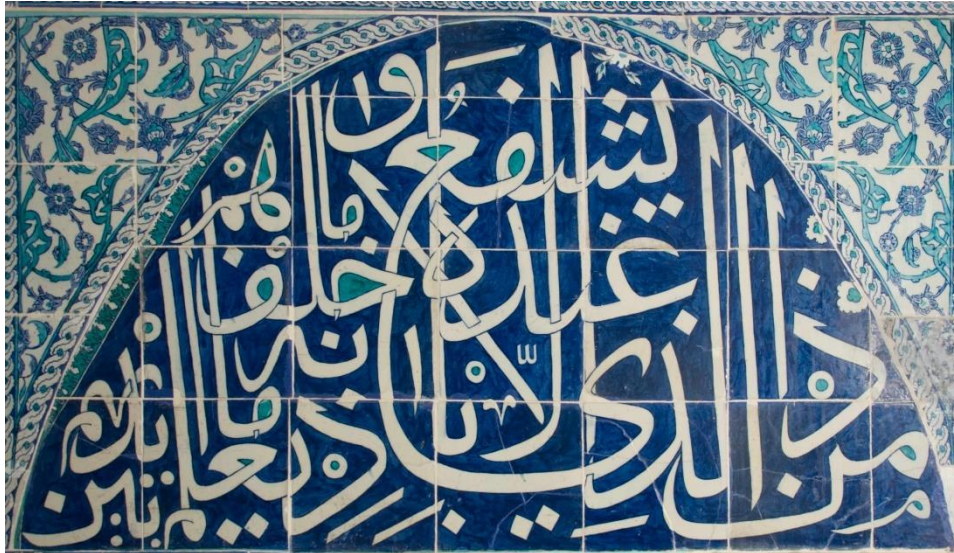 من ذا الذي يشفع عنده إلا باذنه يعلم ما بين ايديهم وما خلفهم